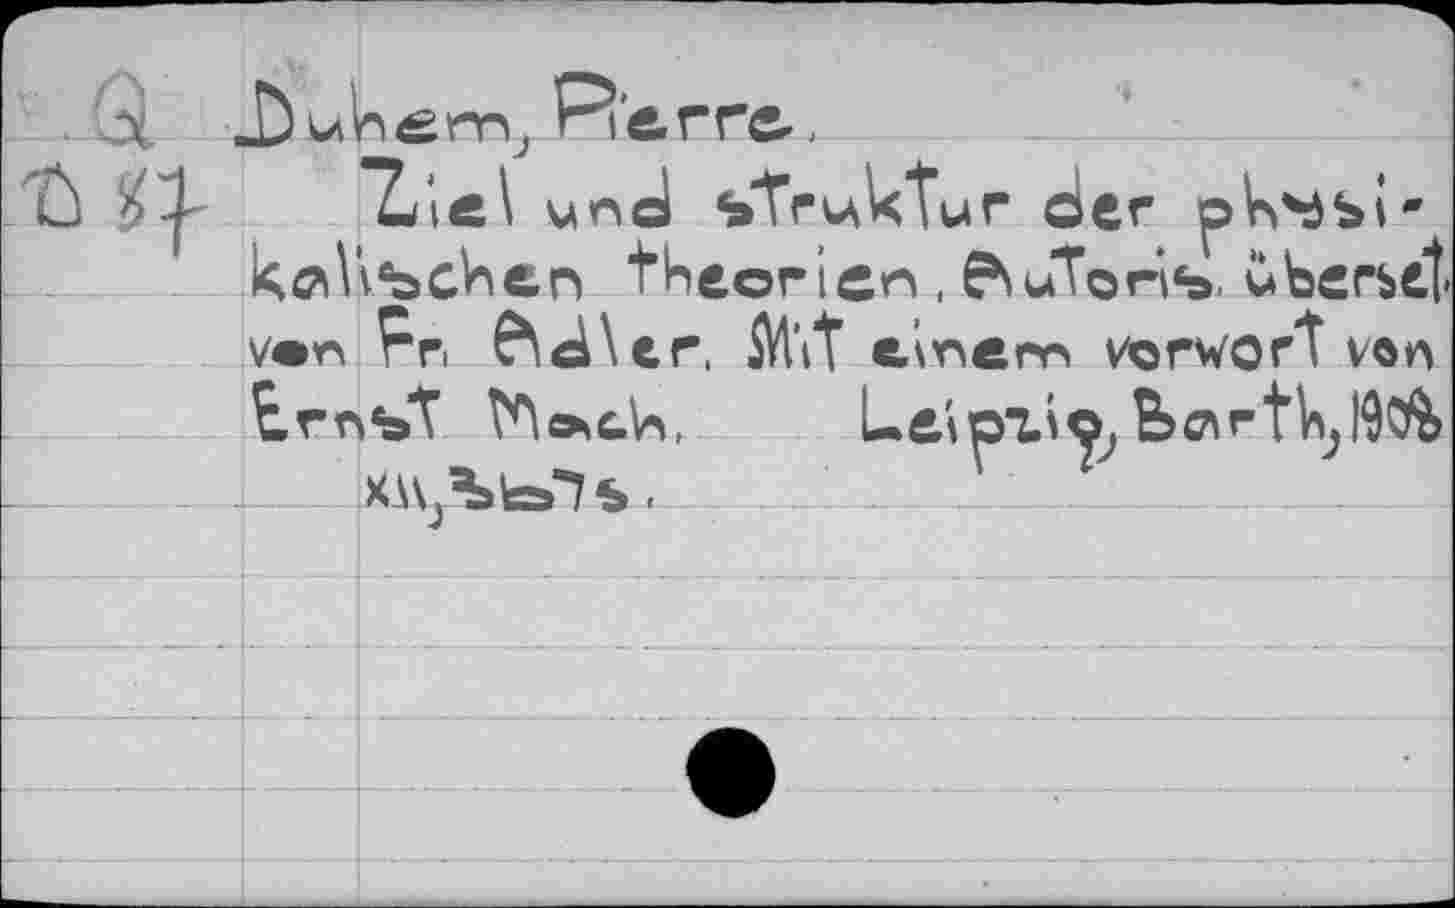 Q Duhem, Pierre.
Ziel und struktur der physi-
kalischen theorien. Autoris. überset.
von Fr. Adler. Mit einem vorwort von
Ernst Mach. Leipzig, Barth, 1908
xii, 367 s.